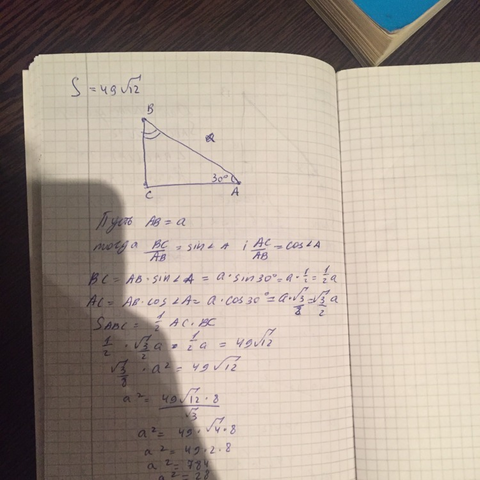 S = 49√12
B
a
30°
C
A
Пусть AB = a
тогда BC/AB = sin∠A ; AC/AB = cos∠A
BC = AB · sin∠A = a · sin30° = a · 1/2 = 1/2 a
AC = AB · cos∠A = a · cos30° = a · √3/2 = √3/2 a
SABC = 1/2 AC · BC
1/2 · √3/2 a · 1/2 a = 49√12
√3/8 · a² = 49√12
a² = 49√12 · 8 / √3
a² = 49 · √4 · 8
a² = 49 · 2 · 8
a² = 784
a² = 28